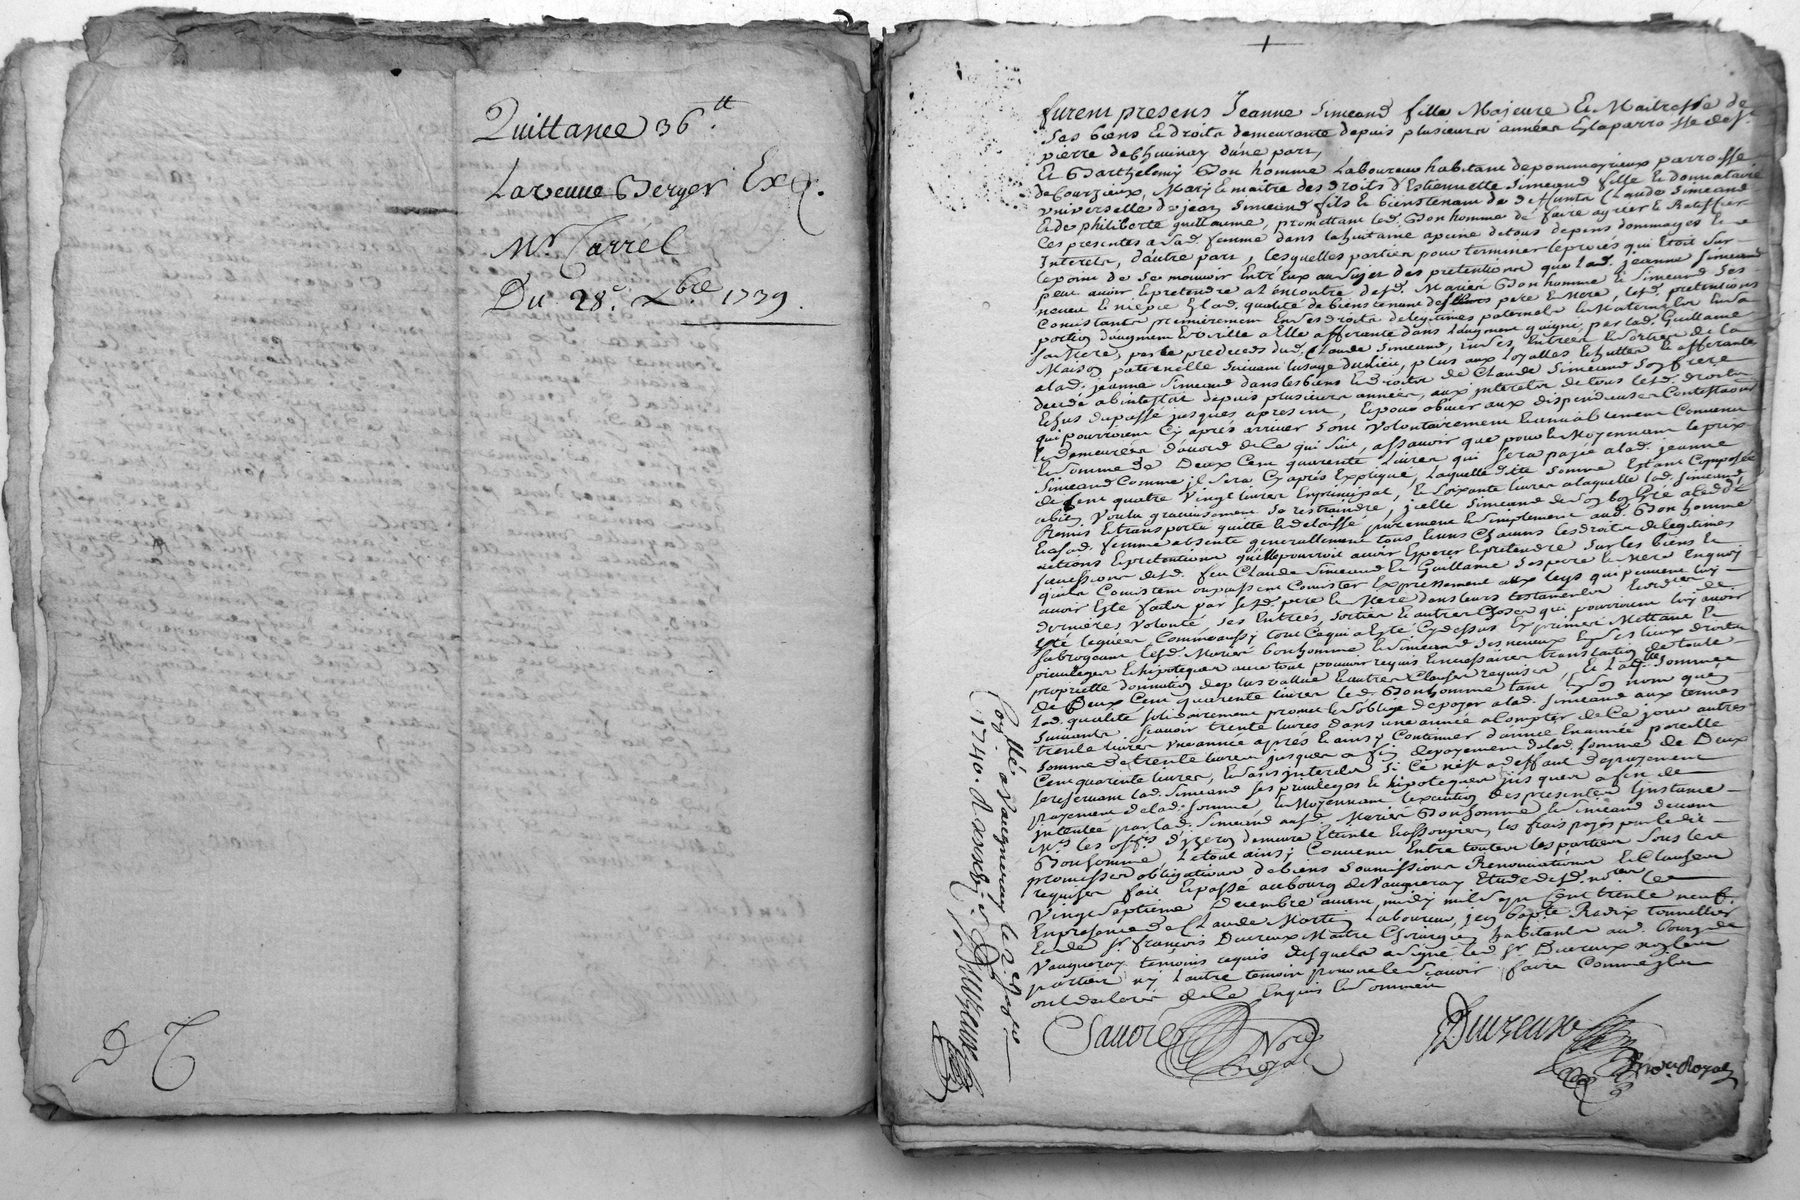 Quittance 36 tt
La veuve Berger Ex
Mr Carrel
Du 28e xbre 1739.
D C
furent presens Jeanne Simeand fille Majeure & Maitresse de
ses biens & droits demeurante depuis plusieurs années En la parroisse de St
pierre de Chevinay d'une part,
Et Barthelemy Bonhomme Laboureur habitant de pommeyrieux parroisse
de Courzieux, Mary & maitre des droits d'Estiennette Simeand fille & donnataire
universelle de jean Simeand fils & bienstenant de deffunts Claude Simeand
& de philiberte guillaume, promettant led. Bonhomme de faire agréer & Ratiffier
Ces presentes a sad. femme dans la huitaine a peine de tous depens dommages &
Interets, d'autre part, Lesquelles parties pour terminer le procés qui Etoit sur
le point de se mouvoir Entr'Eux au sujet des pretentions que lad. jeanne Simeand
peut avoir & pretendre a l'encontre desd. Mariés Bonhomme & Simeand ses
neveu & niepce En lad. qualité de bienstenant de ses pere & Mere, lesd. pretentions
Consistants premierement En ses droits de legitimes paternels & Maternels En sa
portion d'augment & virille a Elle afferante dans l'augment gaigné par lad. Guillaume
sa Mere, par le predeces dud. Claude Simeand, En ses Entrées & sorties de la
Maison paternelle suivant l'usage du lieu, plus aux afferante
a lad. jeanne Simeand dans les biens & droits de Claude Simeand son frere
decedé abintestat depuis plusieurs années, aux interets de tous lesd. droits
Echus du passé jusques apresent, & pour obvier aux dispendieuses Contestations
qui pourroient Cy aprés arriver sont volontairement & amiablement Convenu
& demeurées d'accord de Ce qui suit, assavoir que pour & Moyennant le prix
& somme de Deux Cent quarente Livres qui sera payée a lad. jeanne
Simeand Comme il sera Cy aprés Expliqué, Laquelle dite somme Estant Composée
de Cent quatre vingt livres En principal, & soixante livres a laquelle lad. Simeand
a bien voulu gratieusement se restraindre, icelle Simeand de son bon gré a cedé
Remis & transporté quitte & delaisse purement & simplement aud. Bonhomme
& a sad. femme absente generallement tous & uns Chacuns les droits de legitimes
actions & pretentions qu'elle pourroit avoir Esperer & pretendre sur les biens &
successions desd. feu Claude Simeand & Guillaume ses pere & Mere En quoy
qu'ils Consistent ou puissent Consister Expressement aux legs qui peuvent luy
avoir Esté faits par sesd. pere & Mere dans leurs testaments &
dernieres volonté, ses Entrées, sorties & autres Choses qui pourroient luy avoir
Esté leguées, Comme aussy tout Ce qui a Esté Cy dessus Exprimé, Mettant &
subrogeant lesd. Mariés bonhomme & Simeand ses neveux En ses lieux droits
privileges & hipoteques avec tout pouvoir requis & necessaire translation de toute
proprieté donnation de plus vallue & autres Clauses requises, Et lad. somme
de Deux Cent quarente livres led. Bonhomme tant En son nom que
lad. qualité solidairement promet & s'oblige de payer a lad. Simeand aux termes
suivants sçavoir trente livres dans une année a Compter de Ce jour autres
trente livres une année aprés & ainsy Continuer d'année En année pareille
somme de trente livres jusques a fin de payement de lad. somme de Deux
Cent quarente livres, & sans interets si Ce n'est a deffaut de payement
se reservant lad. Simeand ses privileges & hipoteques jusques a fin de
payement de lad. somme, & Moyennant l'execution des presentes L'instance
intentée par lad. Simeand ausd. Mariés Bonhomme & Simeand devant
Mrs les offrs d'yzeron demeure Eteinte & assoupie, les frais payés par le dit
Bonhomme, Le tout ainsy Convenu Entre toutes les parties sous leurs
promesses obligations de biens soumissions Renonciations & Clauses
requises fait & passé au bourg de Vaugneray Etude desd. nores le
vingt septieme Decembre avant midy mil sept Cent trente neuf.
En presence de Claude Martin Laboureur, jean bapte Radix tonnellier
& de sr françois Duvreux Maitre Chirurgien habitants aud. bourg de
Vaugneray temoins requis desquels a signé led sr Duvreux non les
parties ny l'autre temoin pour ne le sçavoir faire Comme ils
ont declaré de Ce Enquis & sommés
Nore
Royal
nore Royal
Conllé a Vaugneray le 2e janvr
1740. R